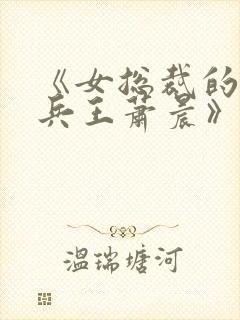 《女总裁的
兵王萧晨》
温瑞塘河